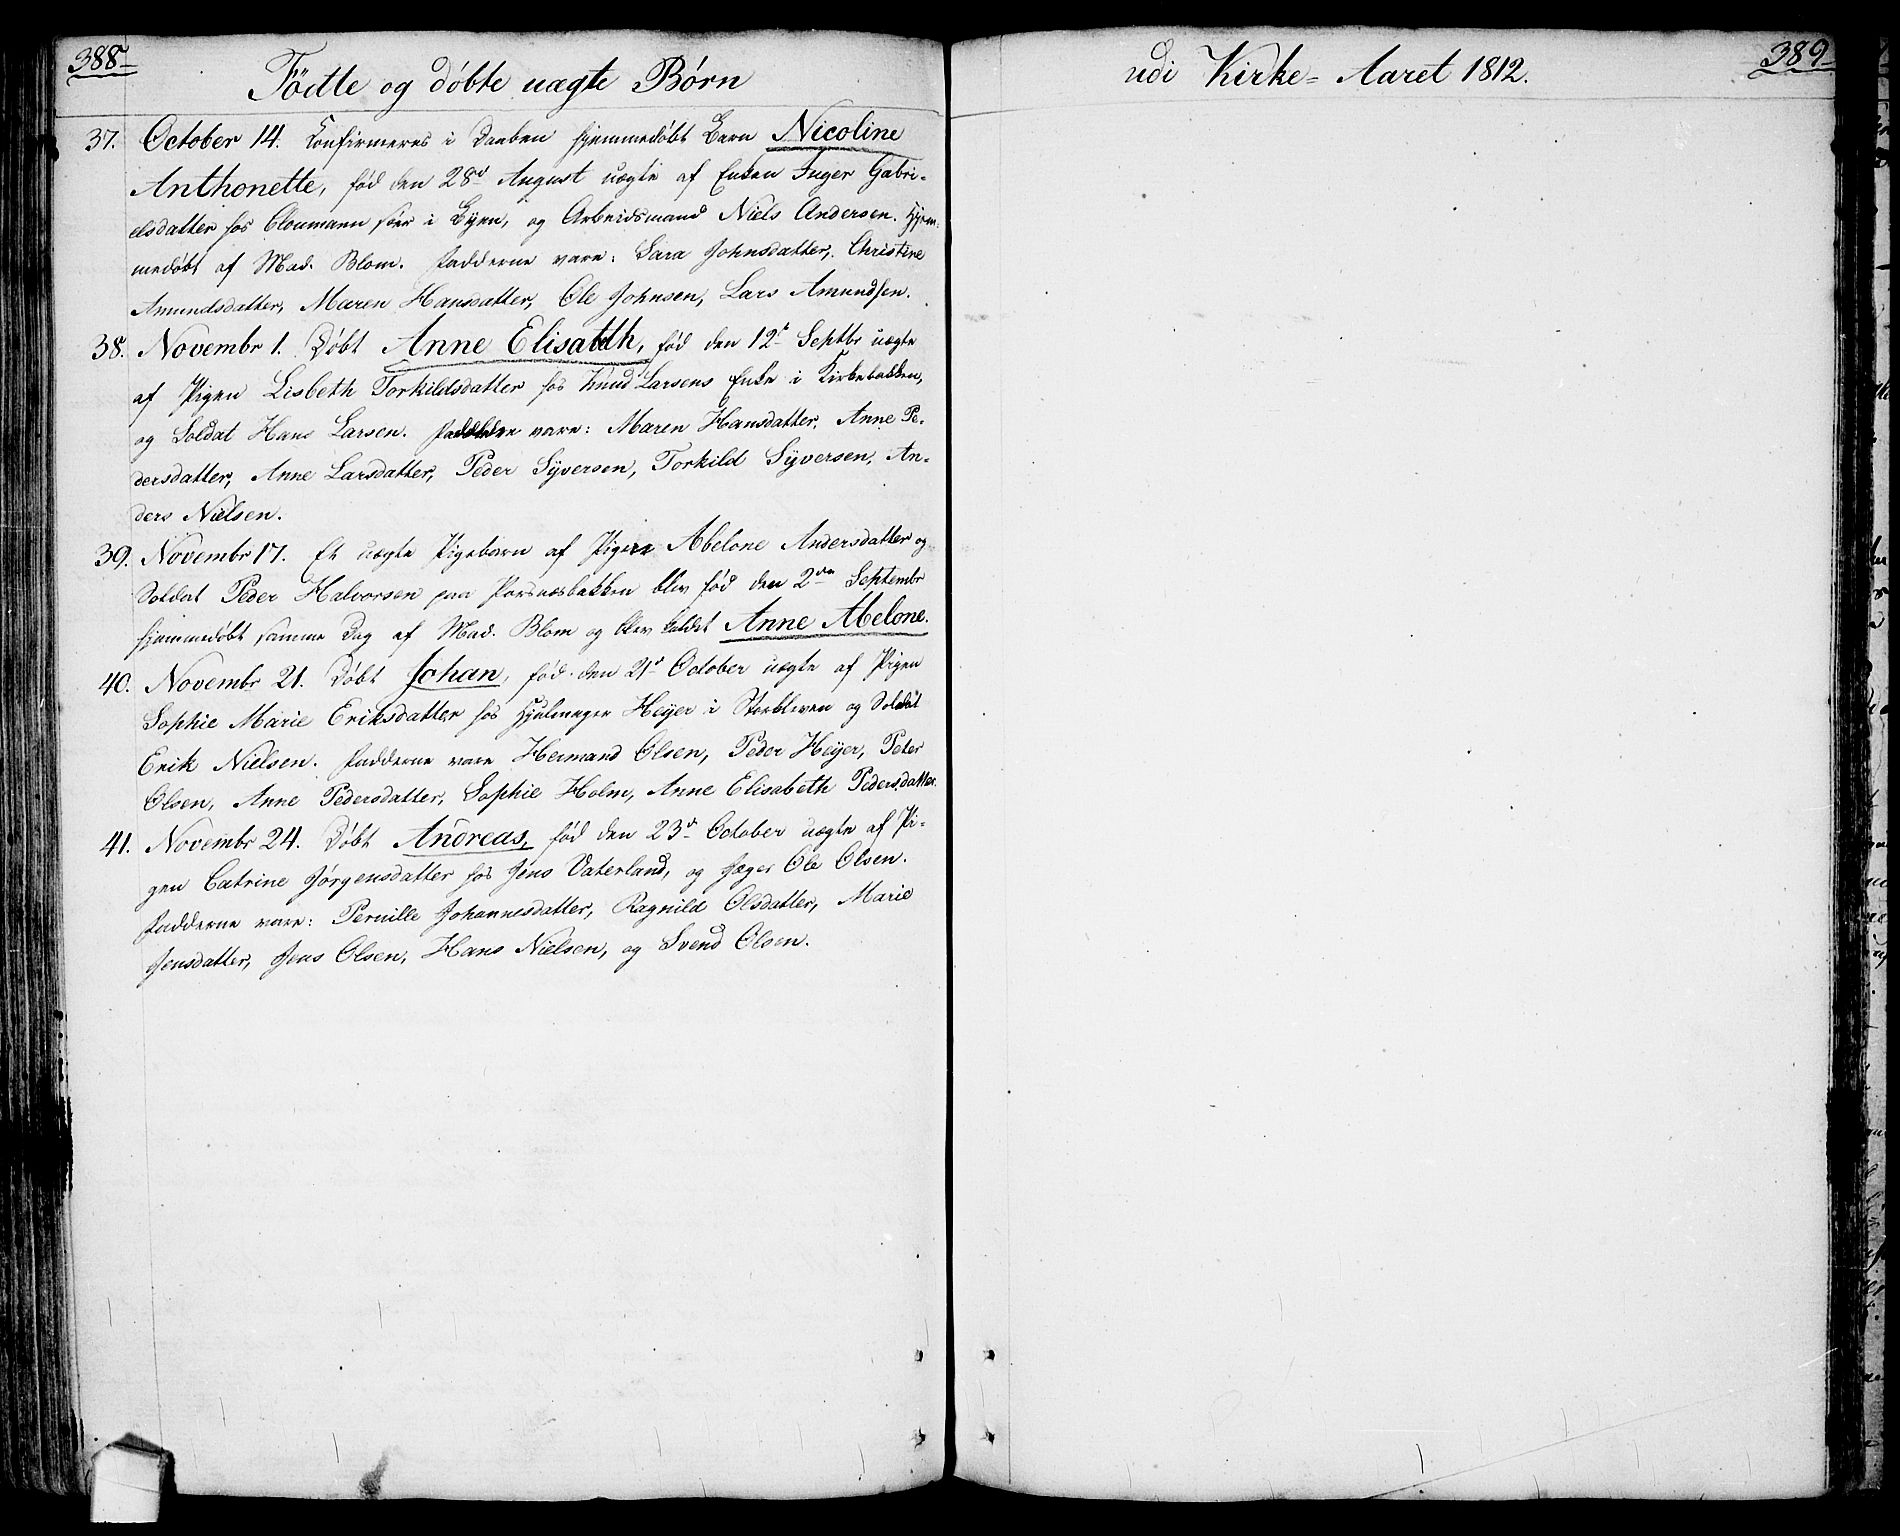 388
Födte og døbte uægte Børn
37. October 14. Confirmeres i Daaben hjemmedøbt Barn Nicoline
Anthonette, fød den 28d August uægte af Enken Inger Gabri-
elsdatter hos Cloumann her i Byen, og Arbeidsmand Niels Andersen. Hjem-
medøbt af Mad. Blom. Fadderne vare: Sara Johnsdatter, Christine
Amundsdatter, Maren Hansdatter, Ole Johnsen, Lars Amundsen.
38. Novembr 1. Døbt Anne Elisabeth, fød den 12te Septbr uægte
af Pigen Lisbeth Torkildsdatter hos Knud Larsens Enke i Kirkebakken,
og Soldat Hans Larsen. Fadderne vare: Maren Hansdatter, Anne Pe-
dersdatter, Anne Larsdatter, Peder Syversen, Torkild Syversen, An-
ders Nielsen.
39. Novembr 17. Et uægte Pigebarn af Pigen Abelone Andersdatter og
Soldat Peder Halvorsen paa Porsnæsbakken blev fød den 2den Septembr
hjemmedøbt samme Dag af Mad. Blom og blev kaldet Anne Abelone.
40. Novembr 21. Døbt Johan, fød den 21d October uægte af Pigen
Sophie Marie Eriksdatter hos Hjulmager Heÿer i Storbleven og Soldat
Erik Nielsen. Fadderne vare Hermand Olsen, Peder Heÿer, Peter
Olsen, Anne Pedersdatter, Sophie Holm, Anne Elisabeth Pedersdatter.
41. Novembr 24. Døbt Andreas, fød den 23d October uægte af Pi-
gen Catrine Jørgensdatter hos Jens Vaterland, og Jæger Ole Olsen.
Fadderne vare: Pernille Johannesdatter, Ragnild Olsdatter, Marie
Jensdatter, Jens Olsen, Hans Nielsen, og Svend Olsen.
389
udi Kirke-Aaret 1812.